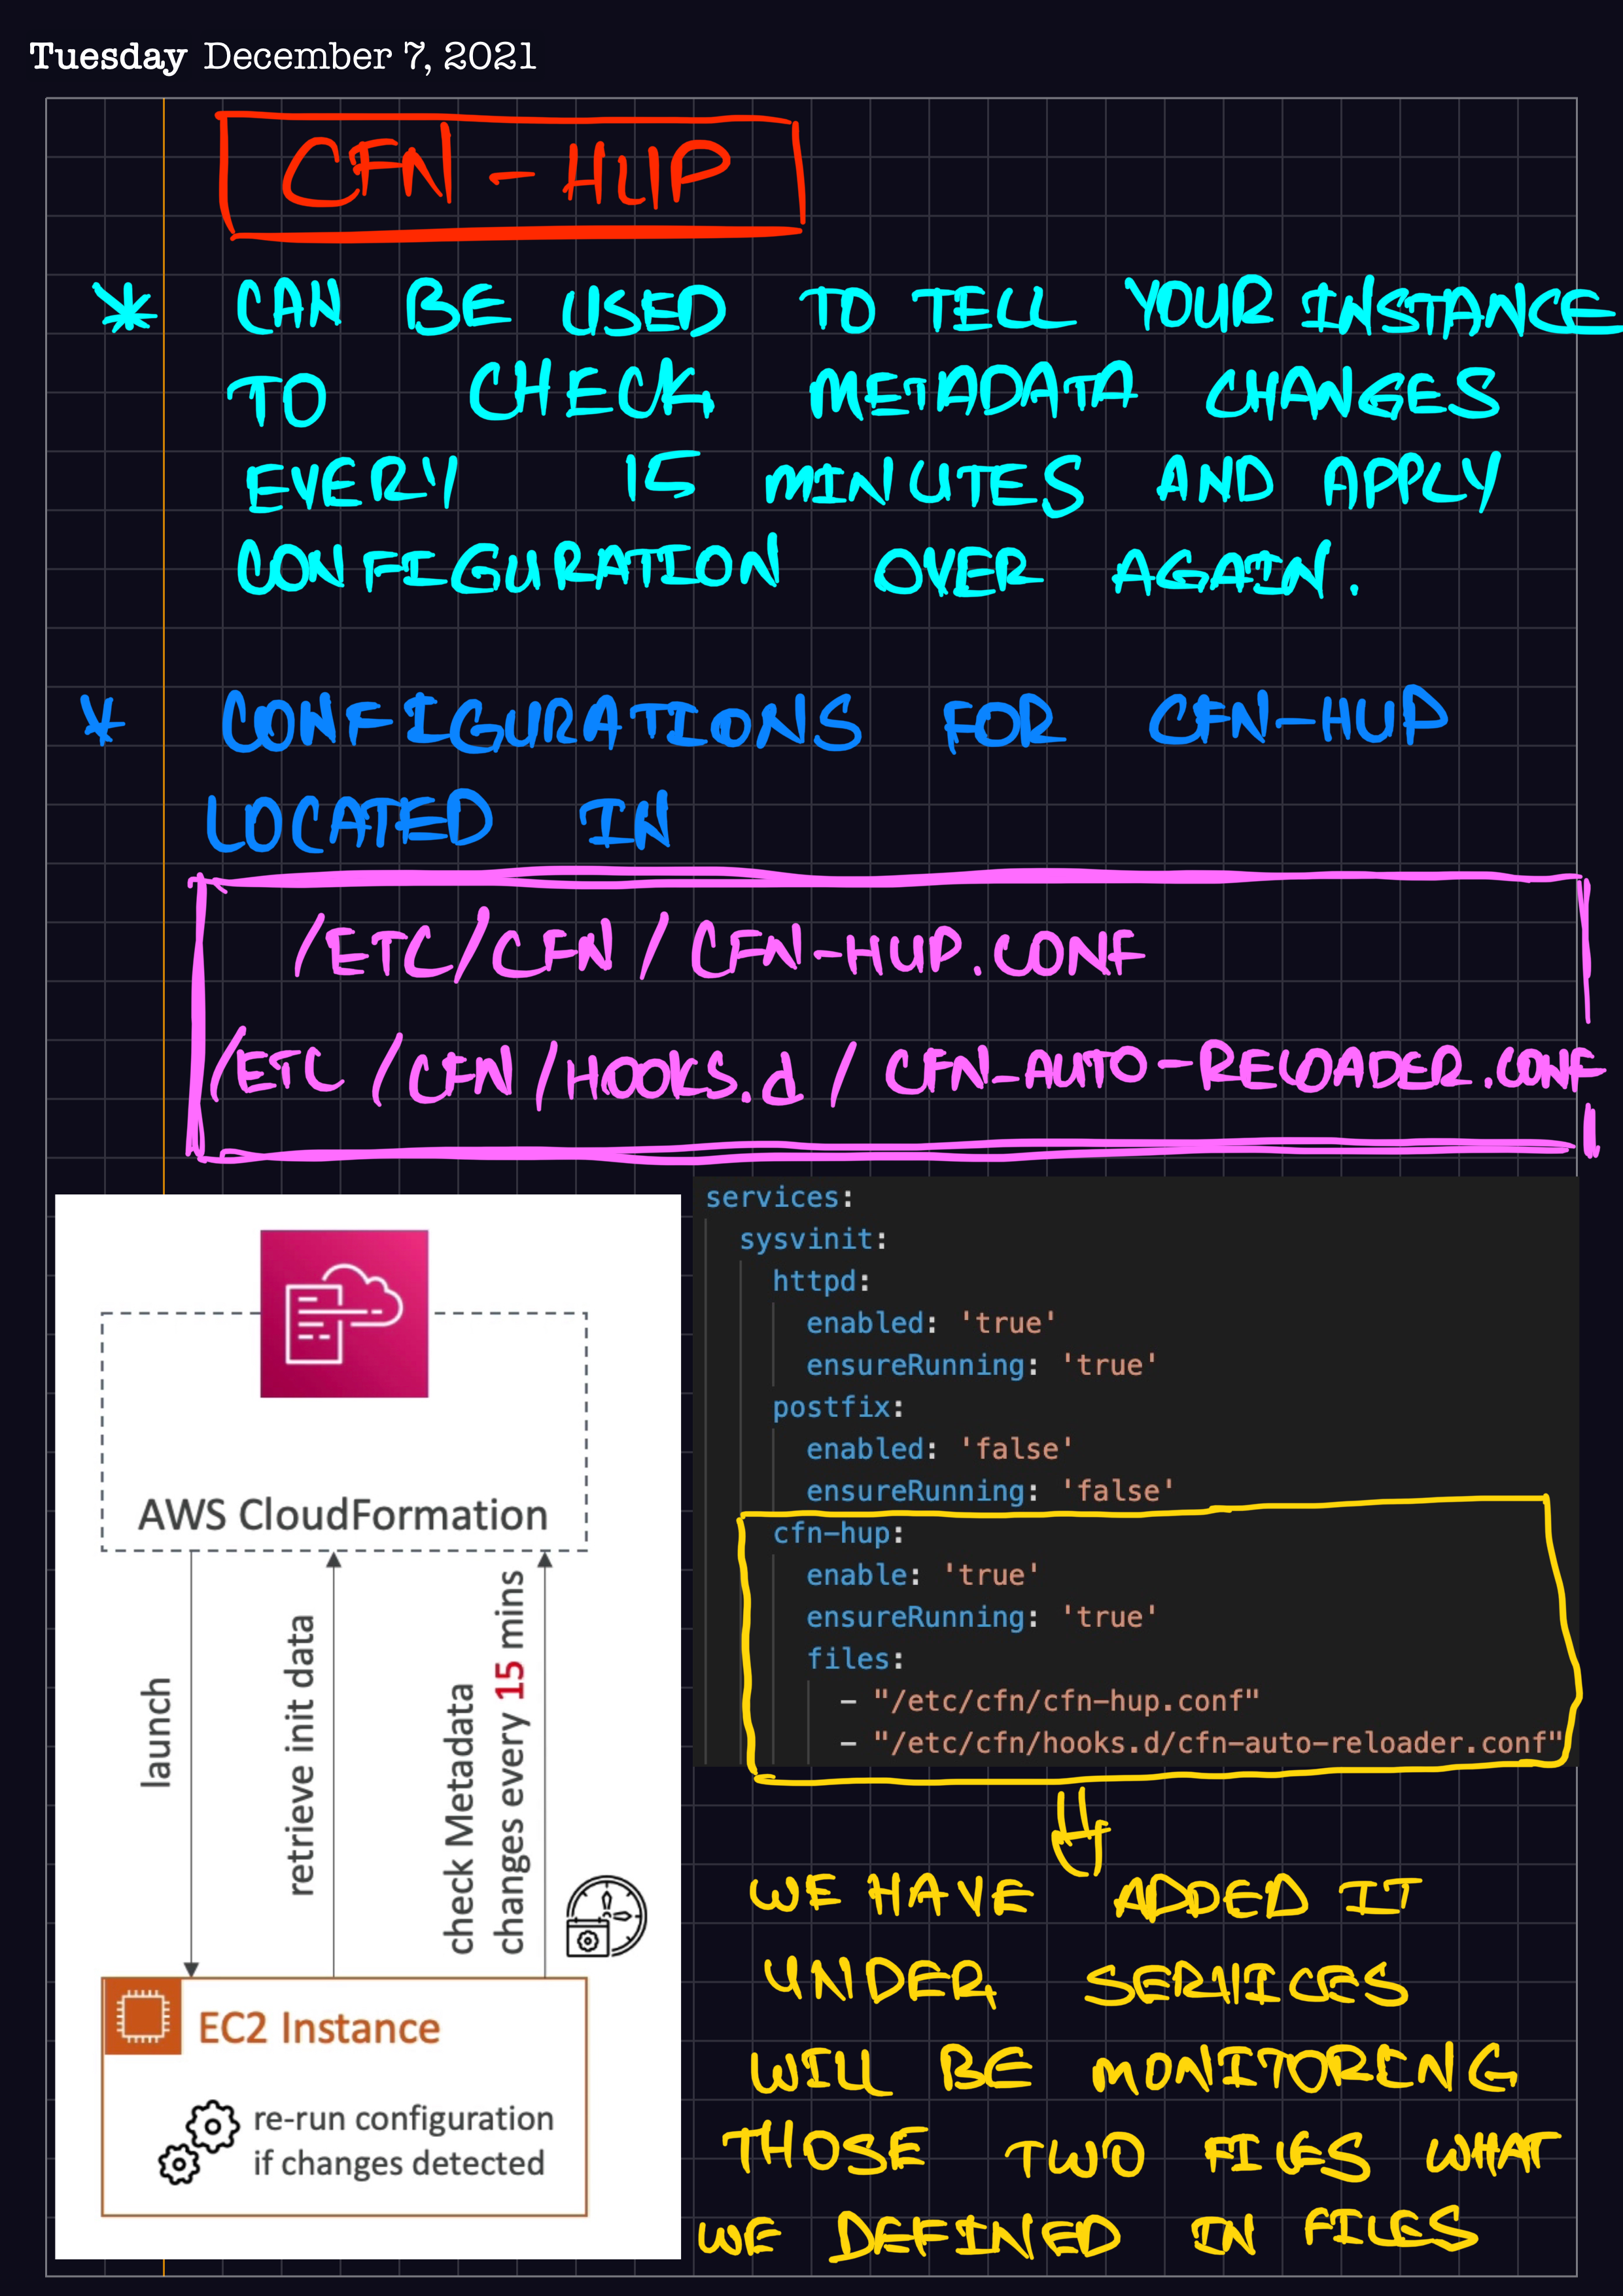 Tuesday December 7, 2021
CFN - HUP
* CAN BE USED TO TELL YOUR INSTANCE
TO CHECK METADATA CHANGES
EVERY 15 MINUTES AND APPLY
CONFIGURATION OVER AGAIN.
* CONFIGURATIONS FOR CFN-HUP
LOCATED IN
/ETC/CFN/CFN-HUP.CONF
/ETC/CFN/HOOKS.d/CFN-AUTO-RELOADER.CONF
AWS CloudFormation
launch
retrieve init data
check Metadata
changes every 15 mins
EC2 Instance
re-run configuration
if changes detected
services:
sysvinit:
httpd:
enabled: 'true'
ensureRunning: 'true'
postfix:
enabled: 'false'
ensureRunning: 'false'
cfn-hup:
enable: 'true'
ensureRunning: 'true'
files:
- "/etc/cfn/cfn-hup.conf"
- "/etc/cfn/hooks.d/cfn-auto-reloader.conf"
WE HAVE ADDED IT
UNDER SERVICES
WILL BE MONITORENG
THOSE TWO FILES WHAT
WE DEFINED IN FILES